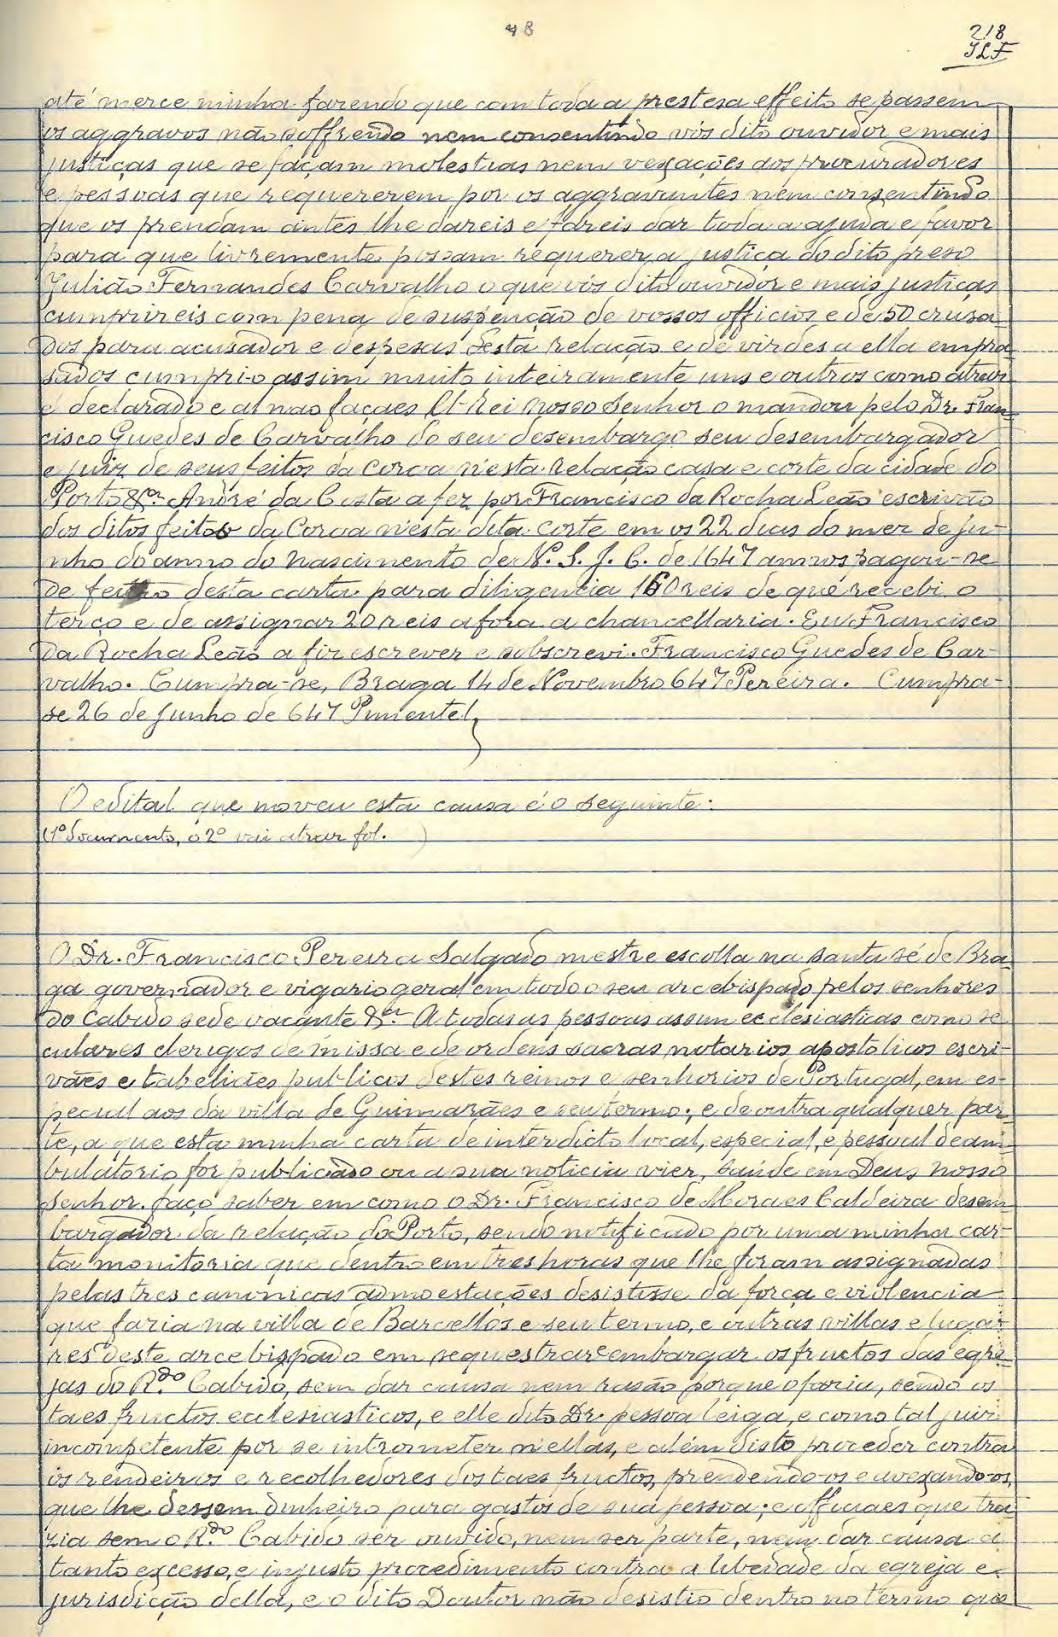 48
218
JLF
até merce minha fazendo que com toda a prestesa effeito se passem
os aggravos não soffrendo nem consentindo vós dito ouvidor e mais
justiças que se façam molestias nem vexações aos procuradores
e pessoas que requererem por os aggravantes nem consentindo
que os prendam antes lhe dareis e fareis dar toda a ajuda e favor
para que livremente possam requerer a justiça do dito preso
Julião Fernandes Carvalho o que vós dito ouvidor e mais justiças
cumprireis com pena de suspenção de vossos officios e de 50 crusa-
dos para acusador e despesas desta relação e de virdes a ella empra-
sados cumpri-o assim muito inteiramente uns e outros como atraz
é declarado e al nao façaes El-Rei nosso senhor o mandou pelo Dr. Fran-
cisco Guedes de Carvalho do seu desembargo seu desembargador
e juiz de seus feitos da coroa n'esta relação casa e corte da cidade do
Porto &ª André da Costa a fez por Francisco da Rocha Leão escrivão
dos ditos feitos da Coroa n'esta dita corte em os 22 dias do mez de ju-
nho do anno do nascimento de N. S. J. C. de 1647 annos pagou-se
de feitio desta carta para diligencia 160 reis de que recebi o
terço e de assignar 20 reis afora a chancellaria. Eu Francisco
da Rocha Leão a fiz escrever e subscrevi. Francisco Guedes de Car-
valho. Cumpra-se, Braga 14 de Novembro 647 Pereira. Cumpra-
se 26 de Junho de 647 Pimentel,
O edital que moveu esta causa é o seguinte:
(1º documento, o 2º vai atraz fol. )
O Dr. Francisco Pereira Salgado mestre escolla na santa sé de Bra-
ga governador e vigario geral em todo o seu arcebispado pelos senhores
do Cabido sede vacante &ª A todas as pessoas assim ecclesiasticas como se-
culares clerigos de missa e de ordens sacras notarios apostolicos escri-
vães e tabeliães publicos destes reinos e senhorios de Portugal, em es-
pecial aos da villa de Guimarães e seu termo; e de outra qualquer par-
te, a que esta minha carta de interdicto local, especial, e pessoal deam-
bulatorio for publicado ou a sua noticia vier, saúde em Deus nosso
senhor. faço saber em como o Dr. Francisco de Moraes Caldeira desem-
bargador da relação do Porto, sendo notificado por uma minha car-
ta monitoria que dentro em tres horas que lhe foram assignadas
pelas tres canonicas admoestações desistisse da força e violencia
que fazia na villa de Barcellos e seu termo, e outras villas e luga-
res deste arcebispado em sequestrar e embargar os fructos das egre-
jas do R.do Cabido, sem dar causa nem rasão porque o fazia, sendo os
taes fructos ecclesiasticos, e elle dito Dr. pessoa leiga, e como tal juiz
incompetente por se intrometer n'ellas, e além disto proceder contra
os rendeiros e recolhedores dos taes fructos, prendendo-os e avexando-os,
que lhe dessem dinheiro para gastos de sua pessoa; e officiaes que tra-
zia sem o R.do Cabido ser ouvido, nem ser parte, nem dar causa a
tanto excesso, e injusto procedimento contra a liberdade da egreja e
jurisdicção della, e o dito Doutor não desistio dentro no termo que